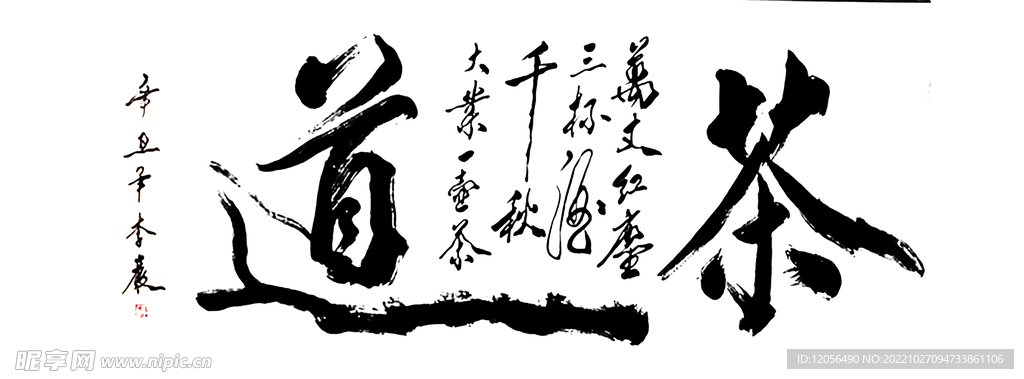 茶道
萬丈红塵
三杯酒
千秋
大業一壺茶
辛丑年李嚴
昵享网 www.nipic.cn
ID:12056490 NO:20221027094733861106